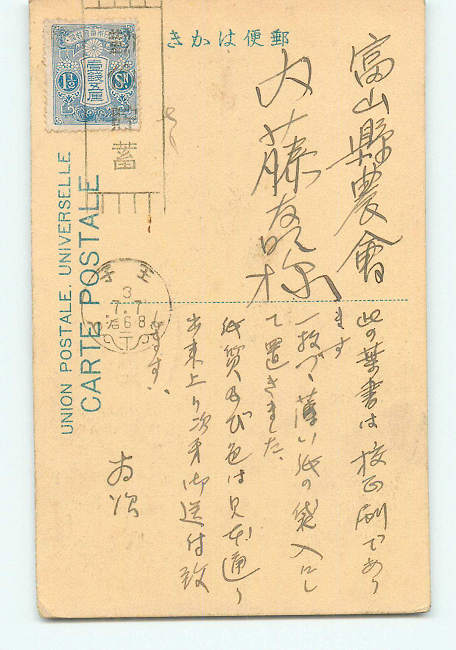 郵便はかき
富山縣農會
内藤友明様
此の葉書は校正刷であり
ます
一枚づゝ薄い紙の袋入にし
て置きました、
紙質及び色は見本通り
出来上り次第御送付致
します、
UNION POSTALE UNIVERSELLE
CARTE POSTALE
壹錢五厘
1½ Sn
貯蓄
王子
3
7.7
后6-8